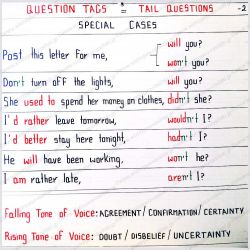 QUESTION TAGS = TAIL QUESTIONS -2
SPECIAL CASES
Post this letter for me, will you?
won't you?
Don't turn off the lights, will you?
She used to spend her money on clothes, didn't she?
I'd rather leave tomorrow, wouldn't I?
I'd better stay here tonight, hadn't I?
He will have been working, won't he?
I am rather late, aren't I?
Falling Tone of Voice: AGREEMENT/CONFIRMATION/CERTAINTY
Rising Tone of Voice: DOUBT/DISBELIEF/UNCERTAINTY